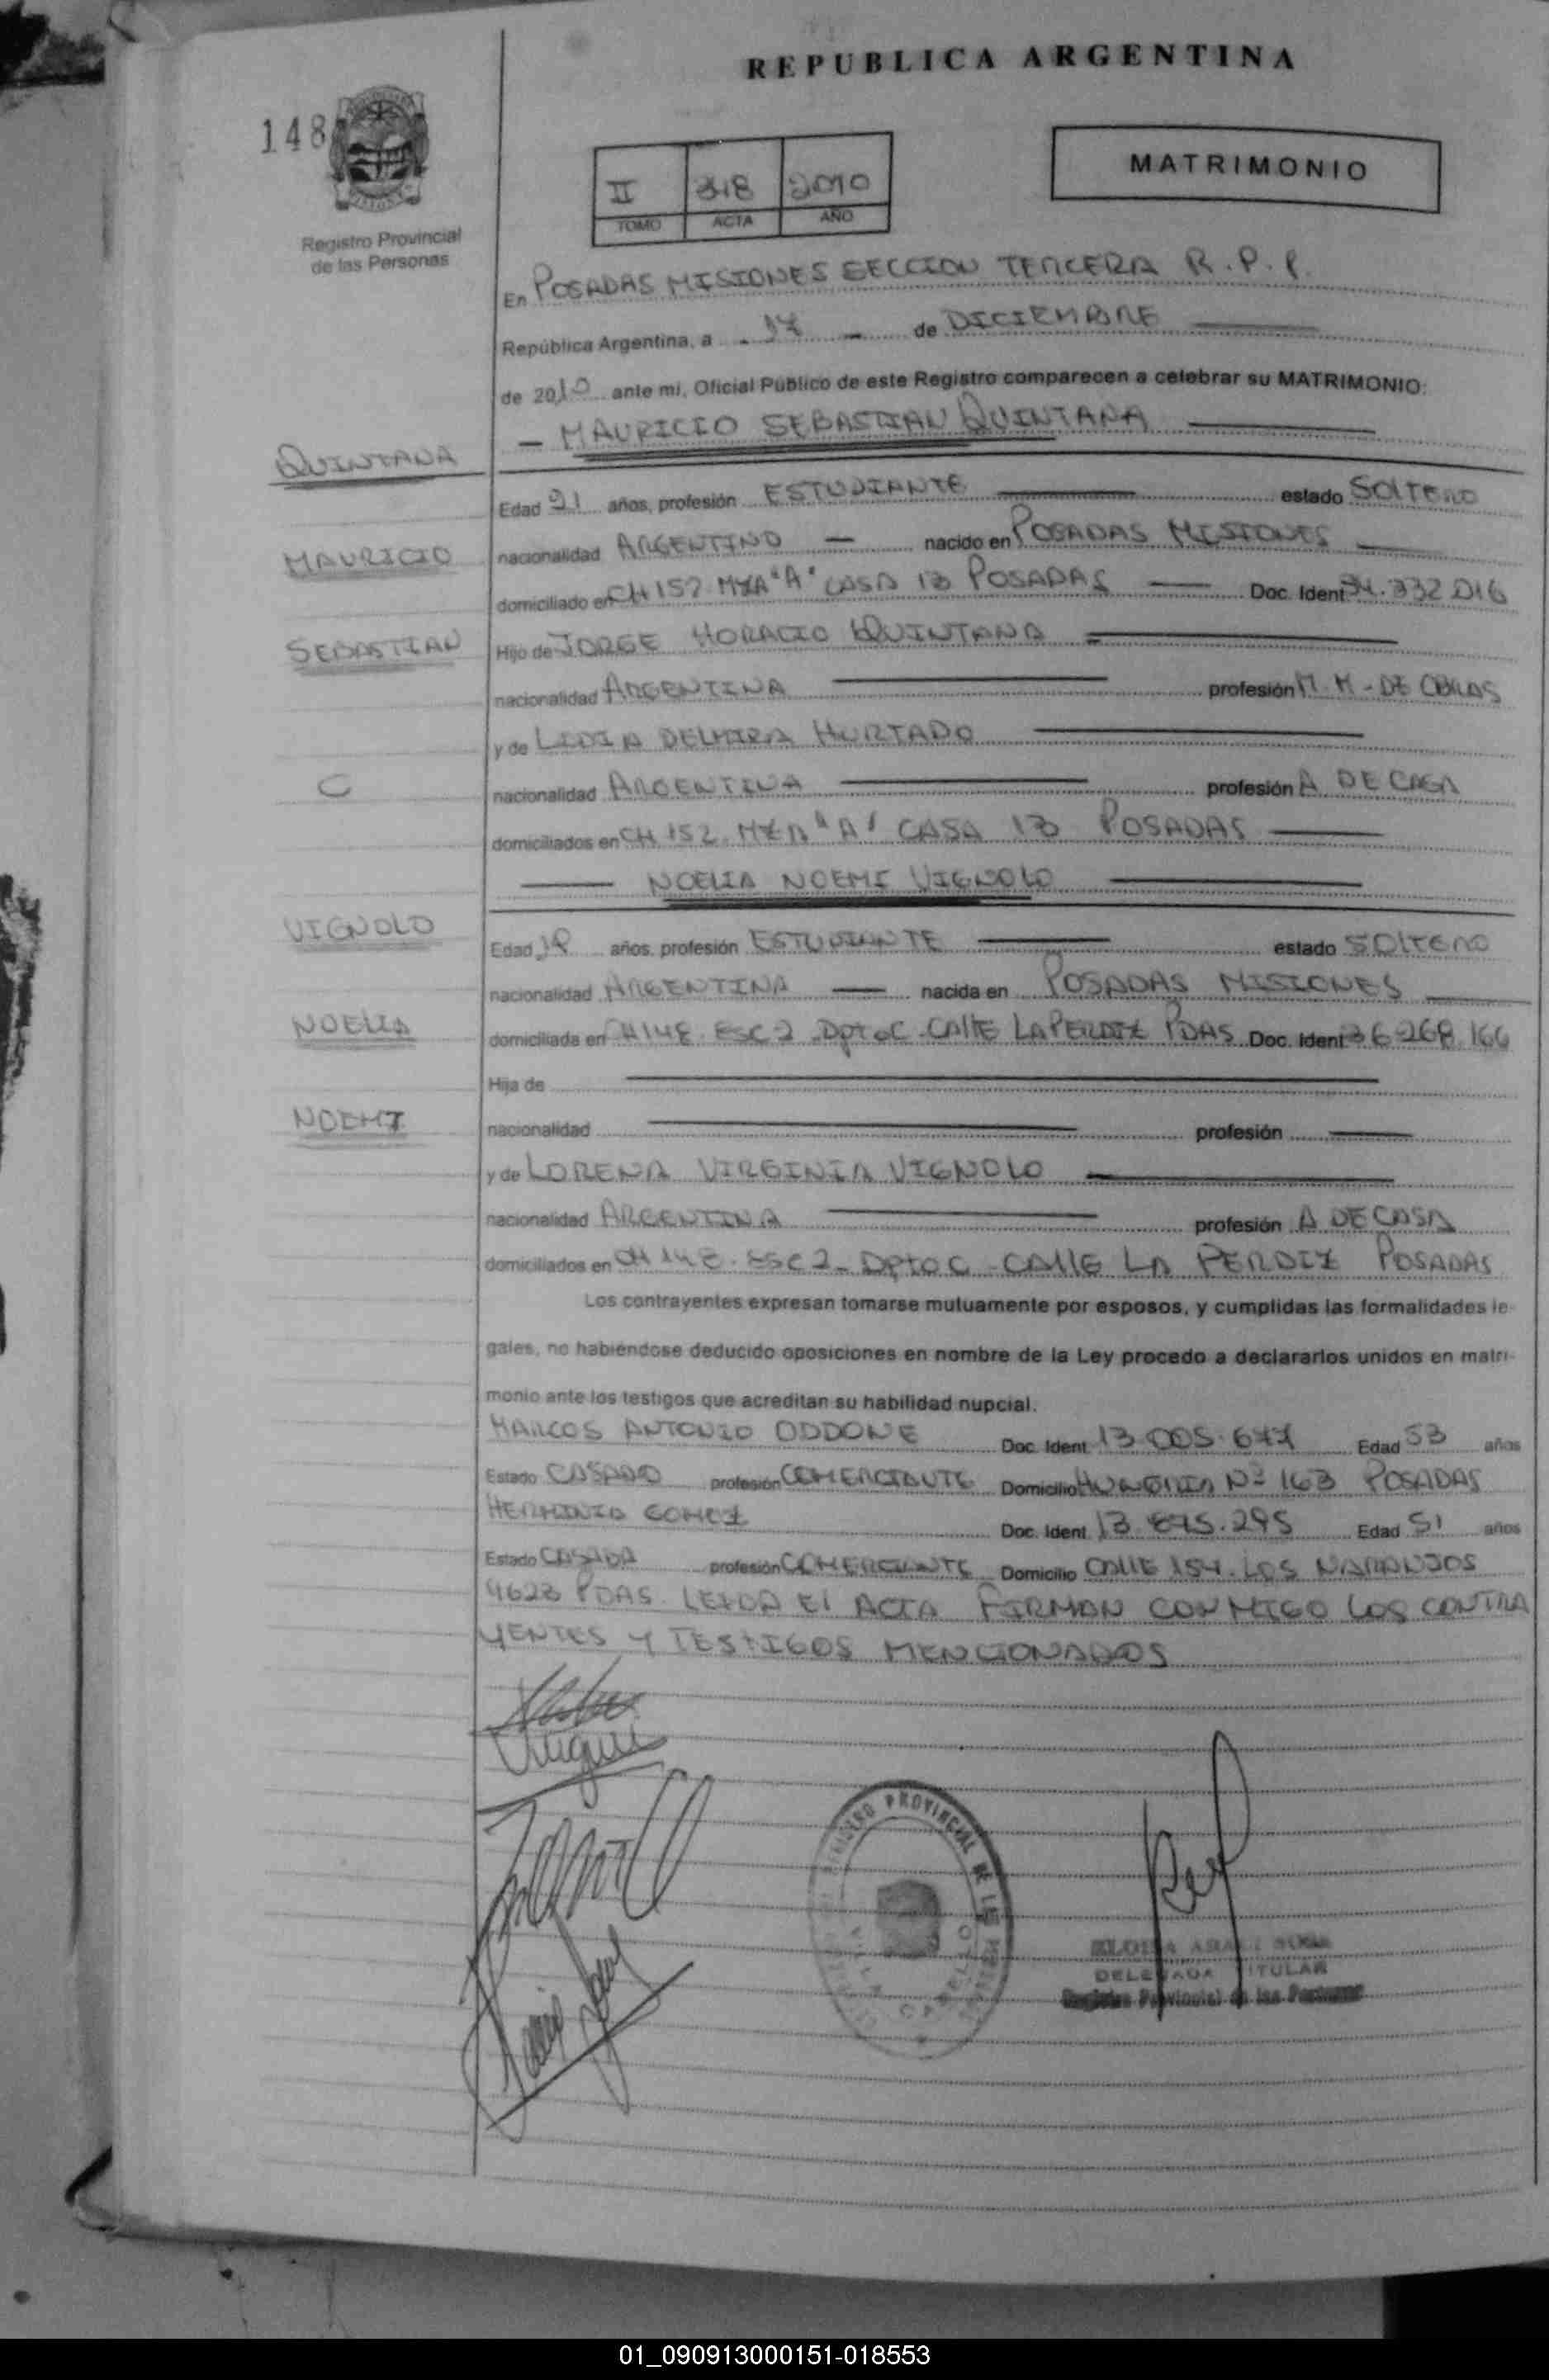 REPUBLICA ARGENTINA
148
MATRIMONIO
II 2010
TOMO ACTA AÑO
Registro Provincial
de las Personas
En POSADAS MISIONES SECCION TERCERA R.P.P.
República Argentina, a 17 de DICIEMBRE
de 2010 ante mi, Oficial Público de este Registro comparecen a celebrar su MATRIMONIO:
MAURICIO SEBASTIAN QUINTANA
QUINTANA
Edad 21 años, profesión ESTUDIANTE estado SOLTERO
MAURICIO
nacionalidad ARGENTINO nacido en POSADAS MISIONES
domiciliado en CH 152 MZA "A" CASA 13 POSADAS Doc. Ident 34.332.016
SEBASTIAN
Hijo de JORGE HORACIO QUINTANA
nacionalidad ARGENTINA profesión M. M - DE OBRAS
y de LIDIA DELMIRA HURTADO
C
nacionalidad ARGENTINA profesión A DE CASA
domiciliados en CH 152 MZA "A" CASA 13 POSADAS
NOELIA NOEMI VIGNOLO
VIGNOLO
Edad años, profesión ESTUDIANTE estado SOLTERO
nacionalidad ARGENTINA nacida en POSADAS MISIONES
NOELIA
domiciliada en ESC 2 - DPTO C - CALLE LA PERDIZ PDAS Doc. Ident
Hija de
NOEMI
nacionalidad profesión
y de LORENA VIRGINIA VIGNOLO
nacionalidad ARGENTINA profesión A DE CASA
domiciliados en ESC 2 - DPTO C - CALLE LA PERDIZ POSADAS
Los contrayentes expresan tomarse mutuamente por esposos, y cumplidas las formalidades le-
gales, no habiéndose deducido oposiciones en nombre de la Ley procedo a declararlos unidos en matri-
monio ante los testigos que acreditan su habilidad nupcial.
MARCOS ANTONIO ODDONE Doc. Ident. 13.005.677 Edad 53 años
Estado CASADO profesión COMERCIANTE Domicilio HUNGRIA Nº 163 POSADAS
HERMINIA GOMEZ Doc. Ident. 13.875.295 Edad 51 años
Estado CASADA profesión COMERCIANTE Domicilio CALLE 154. LOS NARANJOS
4623 PDAS. LEIDA EL ACTA FIRMAN CONMIGO LOS CONTRA
YENTES Y TESTIGOS MENCIONADOS
REGISTRO PROVINCIAL DE LAS PERSONAS
VILLA CABELLO
DELEGADA TITULAR
Registro Provincial de las Personas
01_090913000151-018553